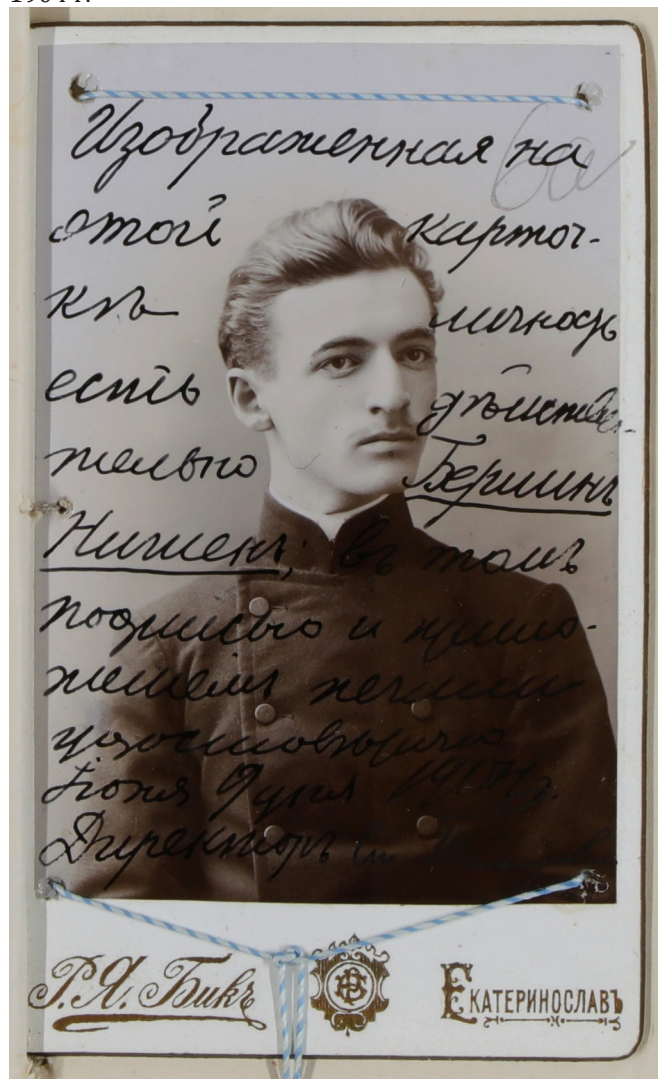 1904 г.
Изображенная на
этой карточ-
кѣ личность
есть дѣйстви-
тельно Бершинъ
Нишенъ; въ томъ
подписью и прило-
жениемъ печати
удостовѣряю
Іюня 9 дня 1904 г.
Директоръ
Р. Я. Бикъ
Екатеринославъ